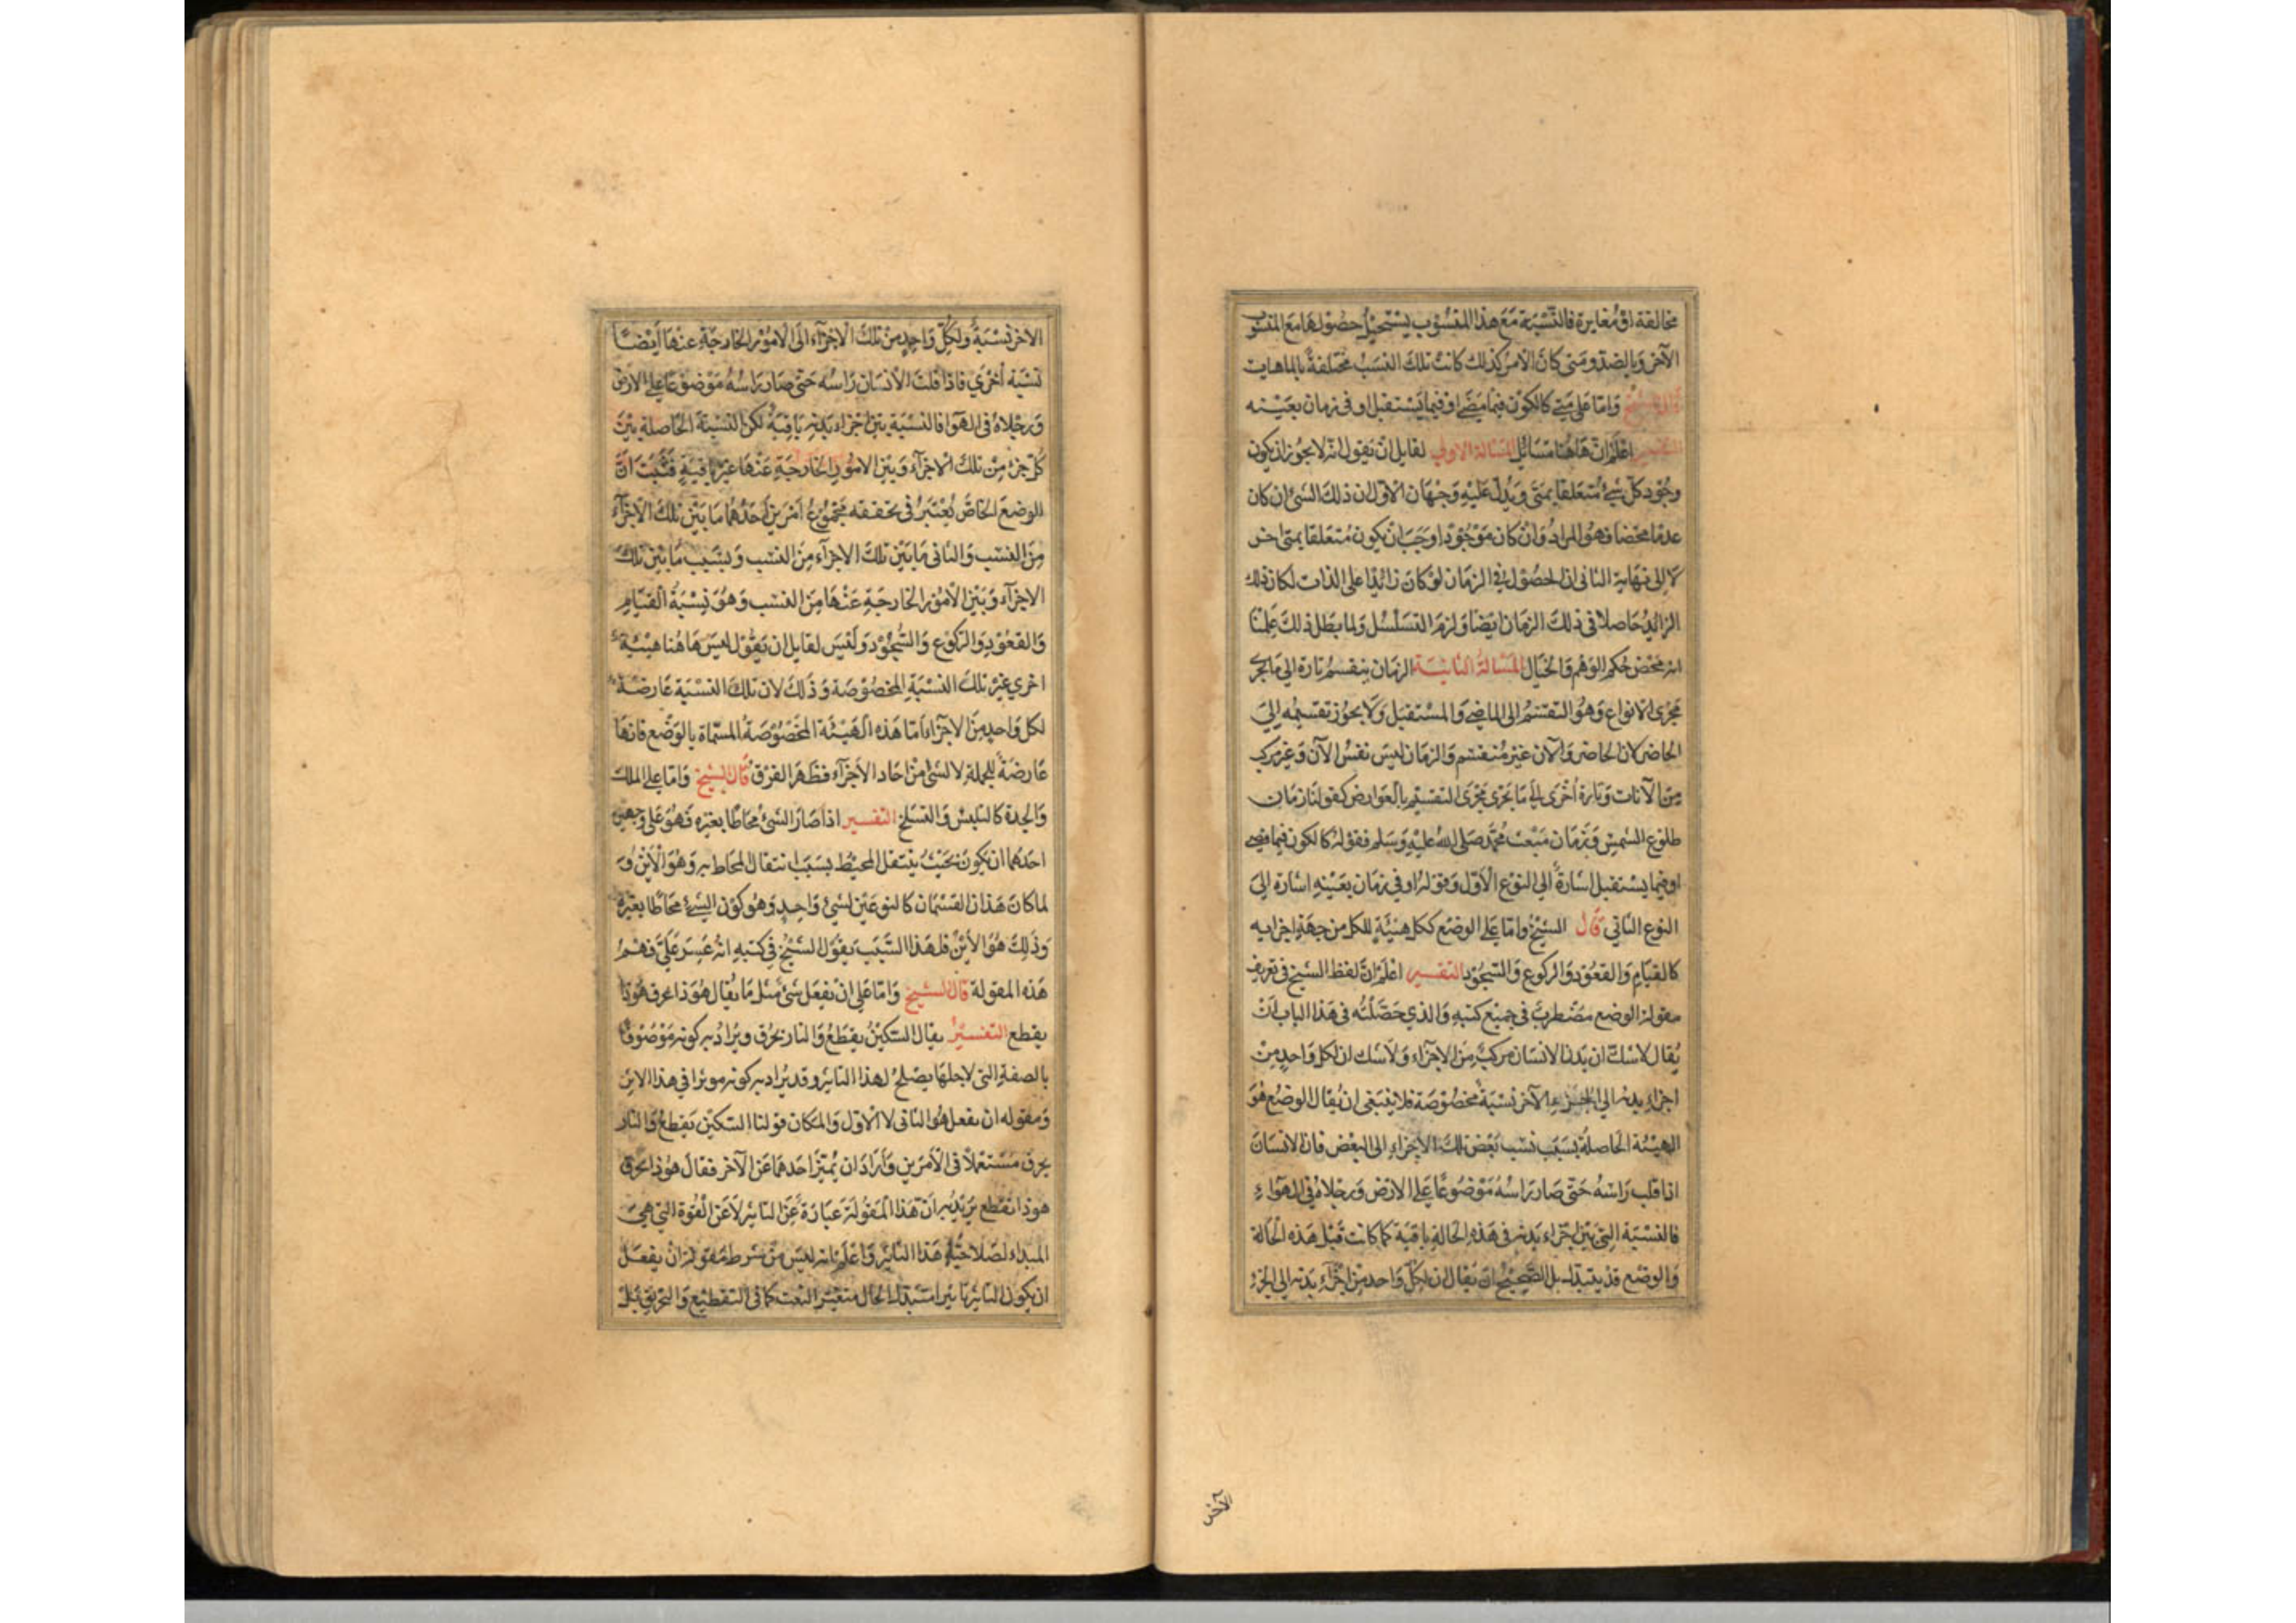 مخالفة او مغايرة فالنسبة مع هذا المنسوب يستحيل حصولها مع المنسوب
الآخر وبالضد ومتى كان الامر كذلك كانت تلك النسب مختلفة بالماهيات
قال الشيخ واما على متى كالكون فيما مضى او فيما يستقبل او في زمان بعينه
التفسير اعلم ان هاهنا مسائل المسألة الاولى لقايل ان يقول انه لا يجوز ان يكون
وجود كل شيء متعلقا بمتى ويدل عليه وجهان الاول ان ذلك الشئ ان كان
عدما محضا فهو المراد وان كان موجودا وجب ان يكون متعلقا بمتى اخر
لا الى نهاية الثاني ان الحصول في الزمان لو كان زائدا على الذات لكان ذلك
الزائد حاصلا في ذلك الزمان ايضا ولزم التسلسل ولما بطل ذلك علمنا
انه محض حكم الوهم والخيال المسألة الثانية الزمان ينقسم تارة الى ما يجري
مجرى الانواع وهو التقسيم الى الماضي والمستقبل ولا يجوز تقسيمه الى
الحاضر لان الحاضر والآن غير منقسم والزمان ليس نفس الآن وغير مركب
من الآنات وتارة أخرى الى ما يجري مجرى التقسيم بالعوارض كقولنا زمان
طلوع الشمس وزمان مبعث محمد صلى الله عليه وسلم فقوله كالكون فيما مضى
او فيما يستقبل اشارة الى النوع الاول وقوله او في زمان بعينه اشارة الى
النوع الثاني قال الشيخ واما على الوضع ككل هيئة للكل من جهة اجزايه
كالقيام والقعود والركوع والسجود التفسير اعلم ان لفظ الشيخ في تعريف
مقولة الوضع مضطرب في جميع كتبه والذي حصلته في هذا الباب ان
يقال لا شك ان بدن الانسان مركب من الاجزاء ولا شك ان لكل واحد من
اجزاء بدنه الى الجزء الآخر نسبة مخصوصة فلا ينبغي ان يقال الوضع هو
الهيئة الحاصلة بسبب نسب بعض تلك الاجزاء الى البعض فان الانسان
اذا قلب راسه حتى صار راسه موضوعا على الارض ورجلاه في الهواء
فالنسبة التي بين اجزاء بدنه في هذه الحالة باقية كما كانت قبل هذه الحالة
والوضع قد يتبدل بل الصحيح ان يقال ان لكل واحد من اجزاء بدنه الى الجزء
الآخر
الاخر نسبة ولكل واحد من تلك الاجزاء الى الامور الخارجة عنها أيضا
نسبة أخرى فاذا قلب الانسان راسه حتى صار راسه موضوعا على الارض
ورجلاه في الهوا فالنسبة بين اجزاء بدنه باقية لكن النسبة الحاصلة بين
كل جزء من تلك الاجزاء وبين الامور الخارجة عنها غير باقية فثبت ان
الوضع الخاص يعتبر في تحققه مجموع امرين احدهما ما بين تلك الاجزاء
من النسب والثاني ما بين تلك الاجزاء من النسب وبسبب ما بين تلك
الاجزاء وبين الامور الخارجة عنها من النسب وهو نسبة القيام
والقعود والركوع والسجود وليس لقايل ان يقول ليس هاهنا هيئة
اخرى غير تلك النسبة المخصوصة وذلك لان تلك النسبة عارضة
لكل واحد من الاجزاء اما هذه الهيئة المخصوصة المسماة بالوضع فانها
عارضة للجملة لا لشئ من احاد الاجزاء فظهر الفرق قال الشيخ واما على الملك
والجدة كالتلبس والتسلح التفسير اذا صار الشئ محاطا بغيره فهو على وجهين
احدهما ان يكون بحيث ينتقل المحيط بسبب انتقال المحاط به وهو الأين و
لما كان هذان القسمان كالنوعين لشئ واحد وهو كون الشيء محاطا بغيره
وذلك هو الأين فلهذا السبب يقول الشيخ في كتبه انه عسر علي فهم
هذه المقولة قال الشيخ واما على ان يفعل شئ مثل ما يقال هو ذا يحرق هوذا
يقطع التفسير يقال السكين يقطع والنار يحرق ويراد به كونه موصوفا
بالصفة التي لاجلها يصلح لهذا التاثير وقد يراد به كونه موثرا في هذا الاثر
ومقوله ان يفعل هو الثاني لا الاول والمكان قولنا السكين يقطع والنار
يحرق مستعملا في الامرين وأراد ان يميز احدهما عن الآخر فقال هو ذا يحرق
هوذا يقطع يريد به ان هذا المقولة عبارة عن التاثير لا عن القوة التي هي
المبداء لصلاحية هذا التاثير واعلم انه ليس من شرط مقولة ان يفعل
ان يكون التاثير تاثيرا متبدل الحال متغير النعت كما في التقطيع والتحريق بل